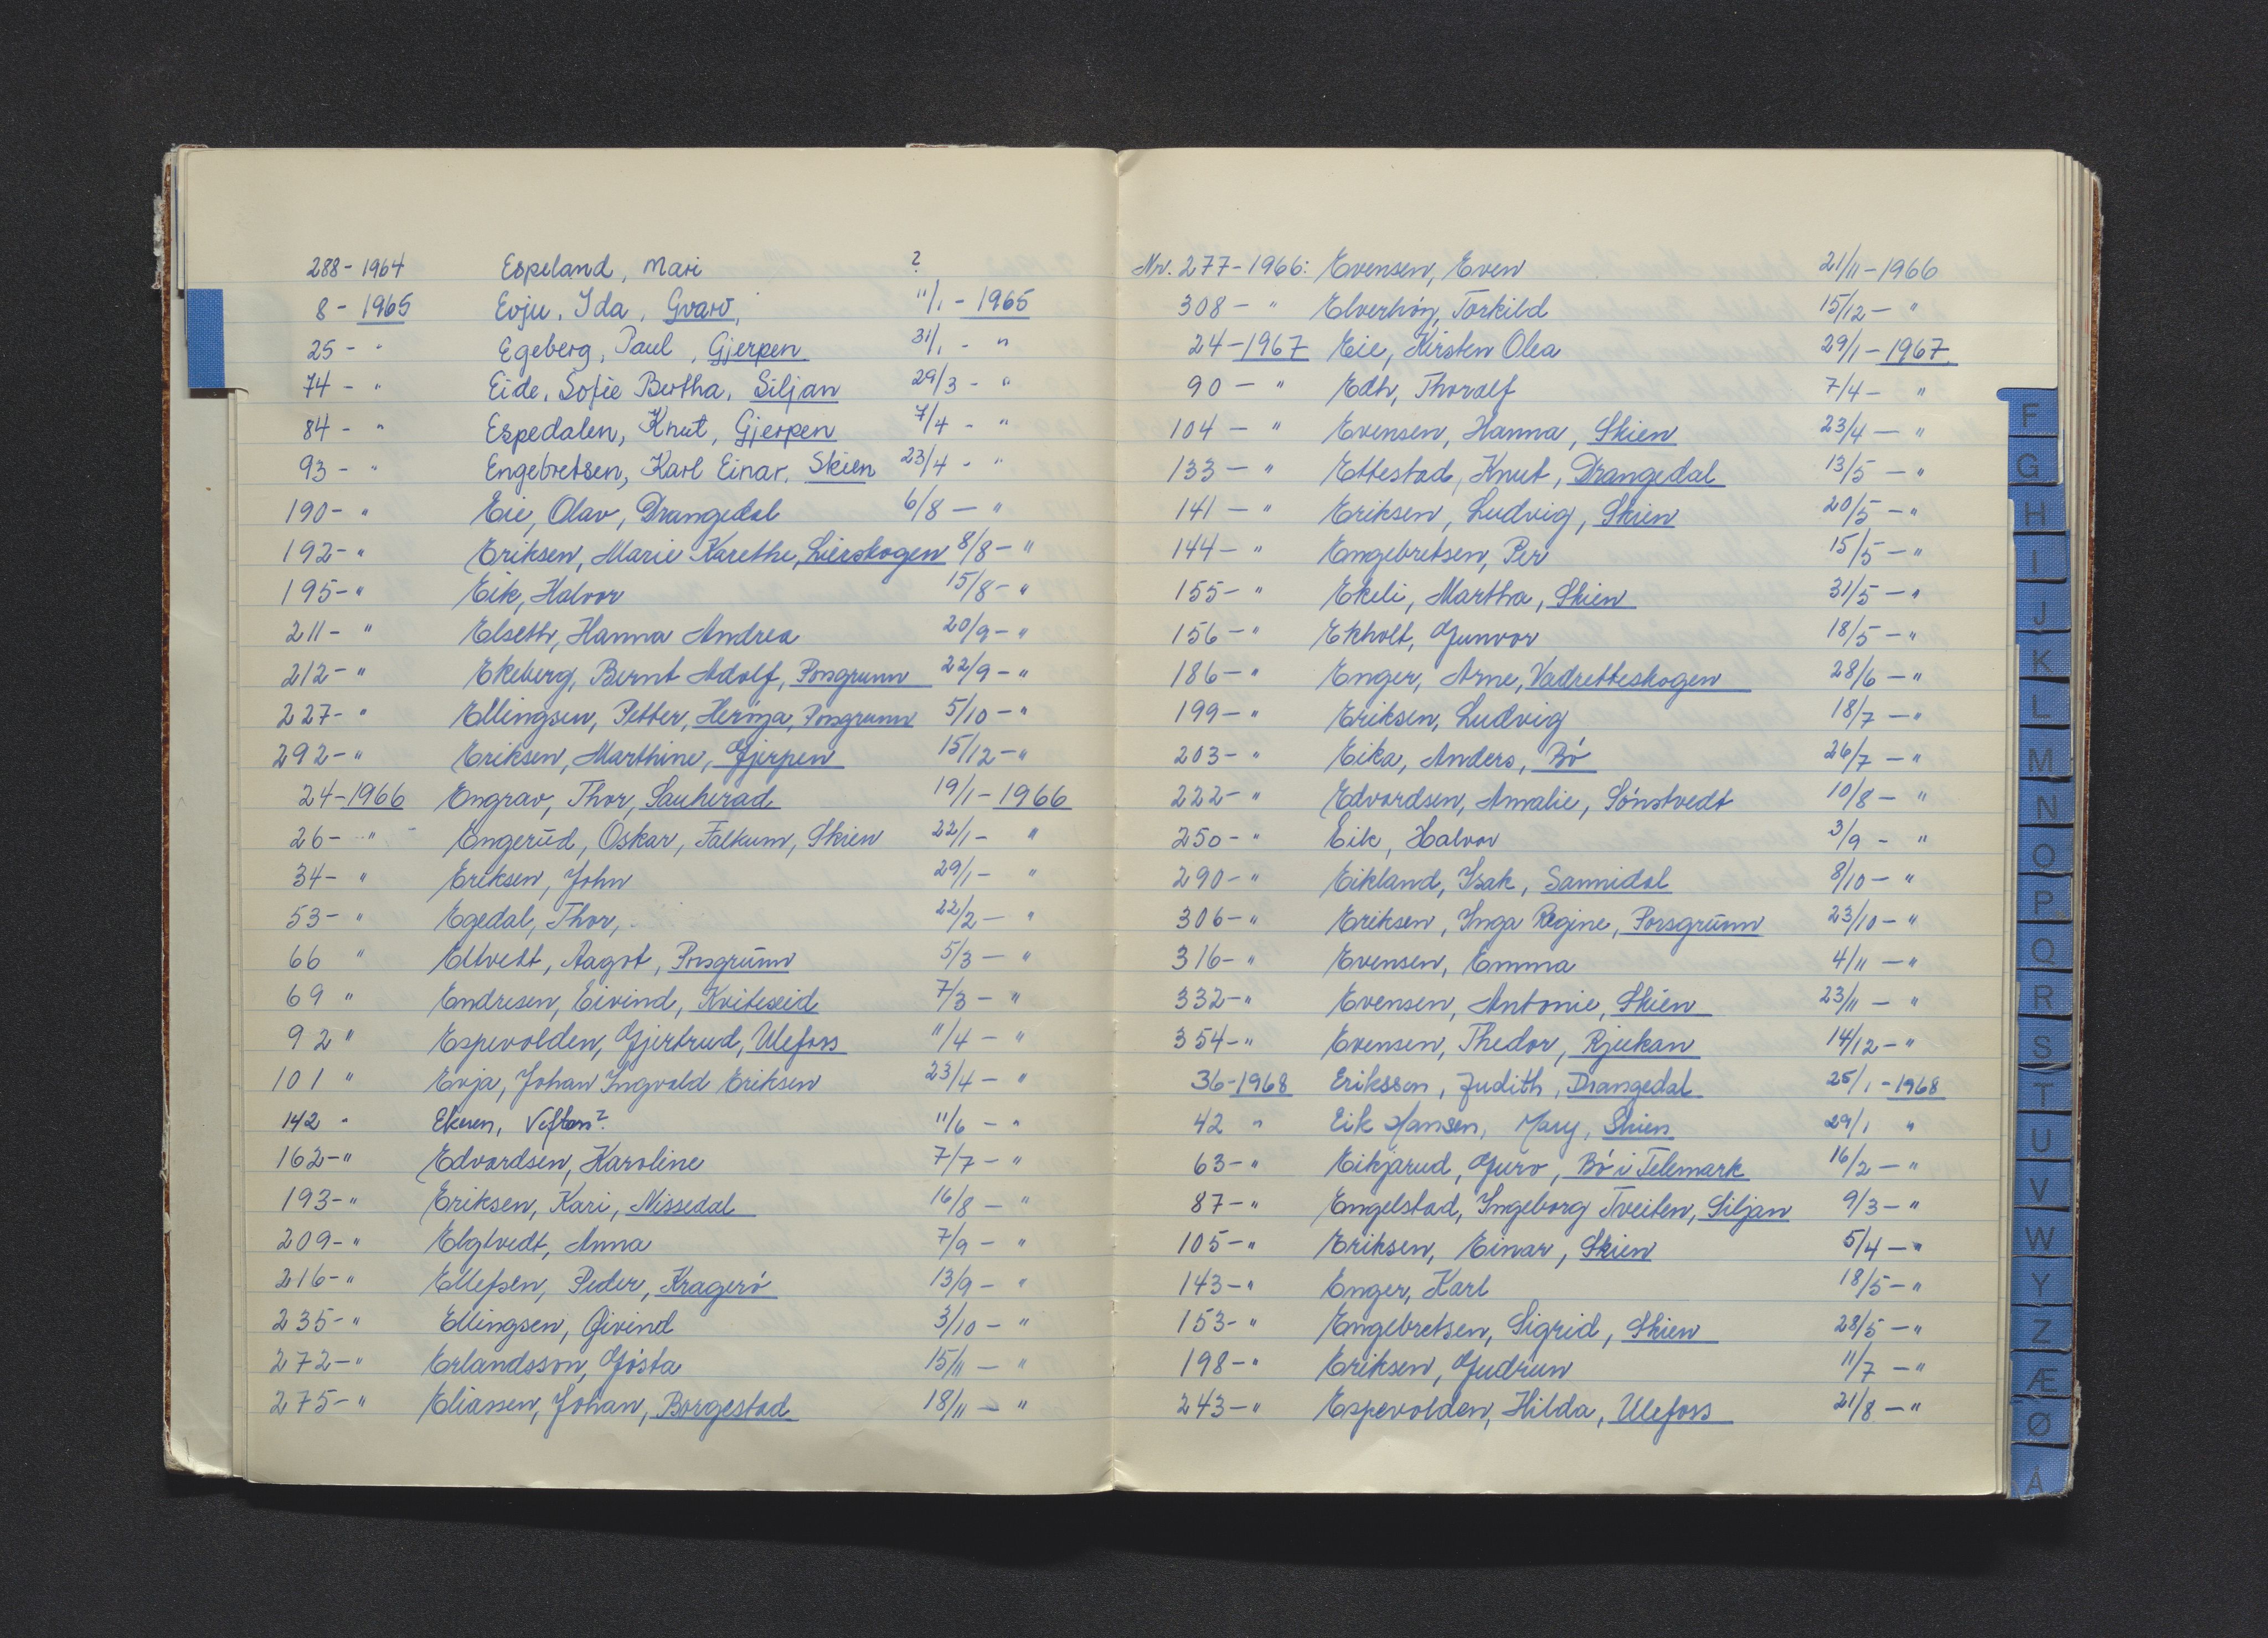 288 - 1964 Espeland, Mari ?
8 - 1965 Evju, Ida, Gvarv, 11/1 - 1965
25 - " Egeberg, Paul, Gjerpen 31/1 - "
74 - " Eide, Sofie Bertha, Siljan 29/3 - "
84 - " Espedalen, Knut, Gjerpen 7/4 - "
93 - " Engebretsen, Karl Einar, Skien 23/4 - "
190 - " Eie, Olav, Drangedal 6/8 - "
192 - " Eriksen, Marie Karethe, Lierskogen 8/8 - "
195 - " Eik, Halvor 15/8 - "
211 - " Elseth, Hanna Andrea 20/9 - "
212 - " Ekeberg, Bernt Adolf, Porsgrunn 22/9 - "
227 - " Ellingsen, Petter, Herøya, Porsgrunn 5/10 - "
292 - " Eriksen, Marthine, Gjerpen 15/12 - "
24 - 1966 Engrav, Thor, Sauherad 19/1 - 1966
26 - " Engerud, Oskar, Falkum, Skien 22/1 - "
34 - " Eriksen, John 29/1 - "
53 - " Egedal, Thor, 22/2 - "
66 " Eltvedt, Aagot, Porsgrunn 5/3 - "
69 " Endresen, Eivind, Kviteseid 7/3 - "
92 " Espevolden, Gjertrud, Ulefoss 11/4 - "
101 " Evja, Johan Ingvald Eriksen 23/4 - "
142 " Ekeren, ? 11/6 - "
162 - " Edvardsen, Karoline 7/7 - "
193 - " Eriksen, Kari, Nissedal 16/8 - "
209 - " Elgtvedt, Anna 7/9 - "
216 - " Ellefsen, Peder, Kragerø 13/9 - "
235 - " Ellingsen, Øivind 3/10 - "
272 - " Erlandsson, Gösta 15/11 - "
275 - " Eliassen, Johan, Borgestad 18/11 - "
Nr. 277 - 1966: Evensen, Even 21/11 - 1966
308 - " Elverhøy, Torkild 15/12 - "
24 - 1967 Eie, Kirsten Olea 29/1 - 1967
90 - " Edh, Thoralf 7/4 - "
104 - " Evensen, Hanna, Skien 23/4 - "
133 - " Ettestad, Knut, Drangedal 13/5 - "
141 - " Eriksen, Ludvig, Skien 20/5 - "
144 - " Engebretsen, Per 15/5 - "
155 - " Ekeli, Martha, Skien 31/5 - "
156 - " Ekholt, Gunvor 18/5 - "
186 - " Enger, Arne, Vadretteskogen 28/6 - "
199 - " Eriksen, Ludvig 18/7 - "
203 - " Eika, Anders, Bø 26/7 - "
222 - " Edvardsen, Amalie, Sønstvedt 10/8 - "
250 - " Eik, Halvor 3/9 - "
290 - " Eikland, Isak, Sannidal 8/10 - "
306 - " Eriksen, Inga Regine, Porsgrunn 23/10 - "
316 - " Evensen, Emma 4/11 - "
332 - " Evensen, Antonie, Skien 23/11 - "
354 - " Evensen, Thedor, Rjukan 14/12 - "
36 - 1968 Eriksson, Judith, Drangedal 25/1 - 1968
42 " Eik Hansen, Mary, Skien 29/1 "
63 - " Eikjarud, Guro, Bø i Telemark 16/2 - "
87 - " Engelstad, Ingeborg Tveiten, Siljan 9/3 - "
105 - " Eriksen, Einar, Skien 5/4 - "
143 - " Enger, Karl 18/5 - "
153 - " Engebretsen, Sigrid, Skien 28/5 - "
198 - " Eriksen, Gudrun 11/7 - "
243 - " Espevolden, Hilda, Ulefoss 21/8 - "
F
G
H
I
J
K
L
M
N
O
P
Q
R
S
T
U
V
W
Y
Z
Æ
Ø
Å